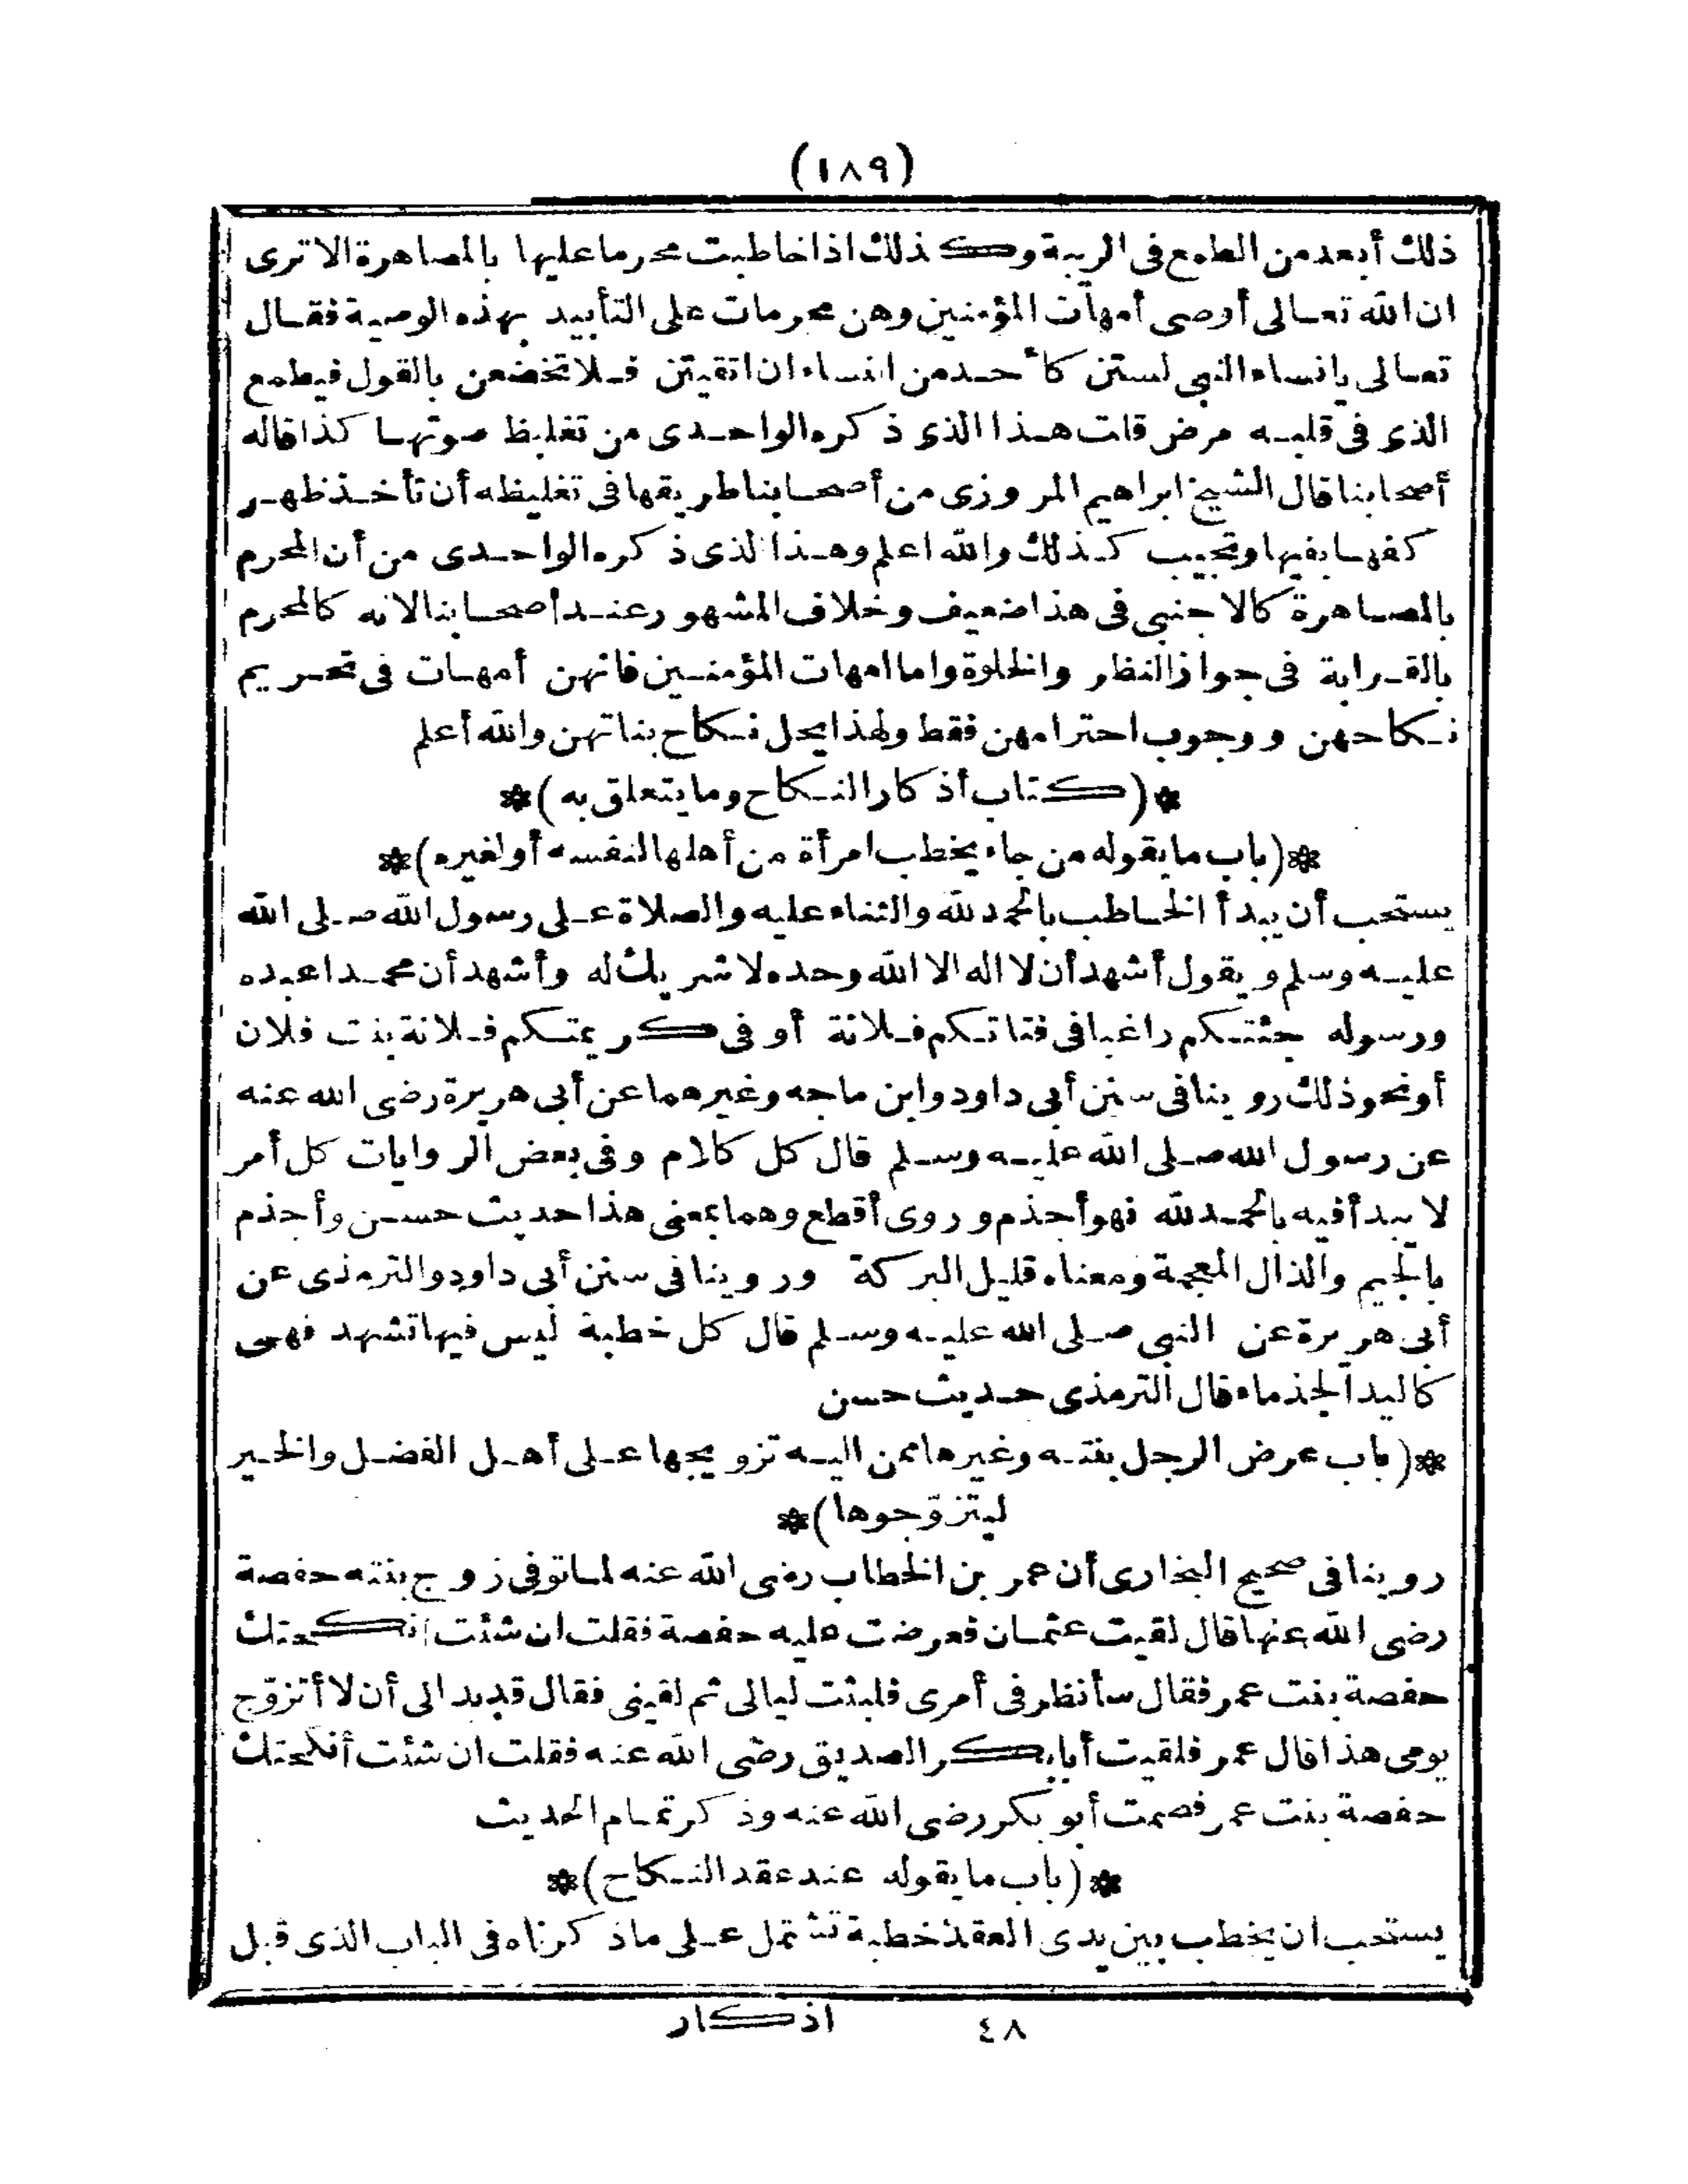 (١٨٩)
ذلك أبعد من الطمع فى الريبة وكذلك اذا خاطبت محرما عليها بالمصاهرة الا ترى
ان الله تعالى أوصى أمهات المؤمنين وهن محرمات على التأبيد بهذه الوصية فقال
تعالى يا نساء النبى لستن كأحد من النساء ان اتقيتن فلا تخضعن بالقول فيطمع
الذى فى قلبه مرض قلت هذا الذى ذكره الواحدى من تغليظ صوتها كذا قاله
أصحابنا قال الشيخ ابراهيم المروزى من أصحابنا طريقها فى تغليظه أن تأخذ ظهر
كفها بفيها وتجيب كذلك والله اعلم وهذا الذى ذكره الواحدى من أن المحرم
بالمصاهرة كالاجنبى فى هذا ضعيف وخلاف المشهور عند أصحابنا لانه كالمحرم
بالقرابة فى جواز النظر والخلوة واما امهات المؤمنين فانهن أمهات فى تحريم
نكاحهن ووجوب احترامهن فقط ولهذا يحل نكاح بناتهن والله أعلم
*(كتاب أذكار النكاح وما يتعلق به)*
*(باب ما يقوله من جاء يخطب امرأة من أهلها لنفسه أو لغيره)*
يستحب أن يبدأ الخاطب بالحمد لله والثناء عليه والصلاة على رسول الله صلى الله
عليه وسلم ويقول أشهد أن لا اله الا الله وحده لا شريك له وأشهد أن محمدا عبده
ورسوله جئتكم راغبا فى فتاتكم فلانة أو فى كريمتكم فلانة بنت فلان
أو نحو ذلك روينا فى سنن أبى داود وابن ماجه وغيرهما عن أبى هريرة رضى الله عنه
عن رسول الله صلى الله عليه وسلم قال كل كلام وفى بعض الروايات كل أمر
لا يبدأ فيه بالحمد لله فهو أجذم وروى أقطع وهما بمعنى هذا حديث حسن وأجذم
بالجيم والذال المعجمة ومعناه قليل البركة وروينا فى سنن أبى داود والترمذى عن
أبى هريرة عن النبى صلى الله عليه وسلم قال كل خطبة ليس فيها تشهد فهى
كاليد الجذماء قال الترمذى حديث حسن
*(باب عرض الرجل بنته وغيرها ممن اليه تزويجها على أهل الفضل والخير
ليتزوّجوها)*
روينا فى صحيح البخارى أن عمر بن الخطاب رضى الله عنه لما توفى زوج بنته حفصة
رضى الله عنها قال لقيت عثمان فعرضت عليه حفصة فقلت ان شئت انكحتك
حفصة بنت عمر فقال سأنظر فى أمرى فلبثت ليالى ثم لقينى فقال قد بدا لى أن لا أتزوّج
يومى هذا قال عمر فلقيت أبا بكر الصديق رضى الله عنه فقلت ان شئت أنكحتك
حفصة بنت عمر فصمت أبو بكر رضى الله عنه وذكر تمام الحديث
*(باب ما يقوله عند عقد النكاح)*
يستحب ان يخطب بين يدى العقد خطبة تشتمل على ما ذكرناه فى الباب الذى قبل
٤٨ اذكار